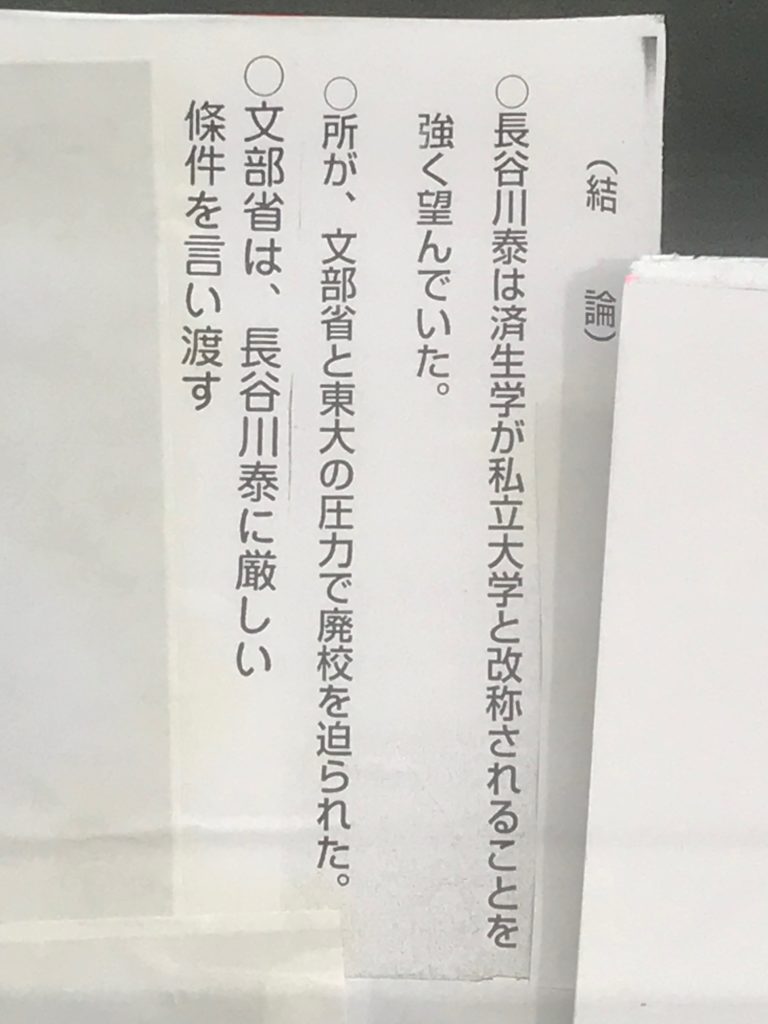 （結　論）
○長谷川泰は済生学が私立大学と改称されることを
強く望んでいた。
○所が、文部省と東大の圧力で廃校を迫られた。
○文部省は、長谷川泰に厳しい
條件を言い渡す